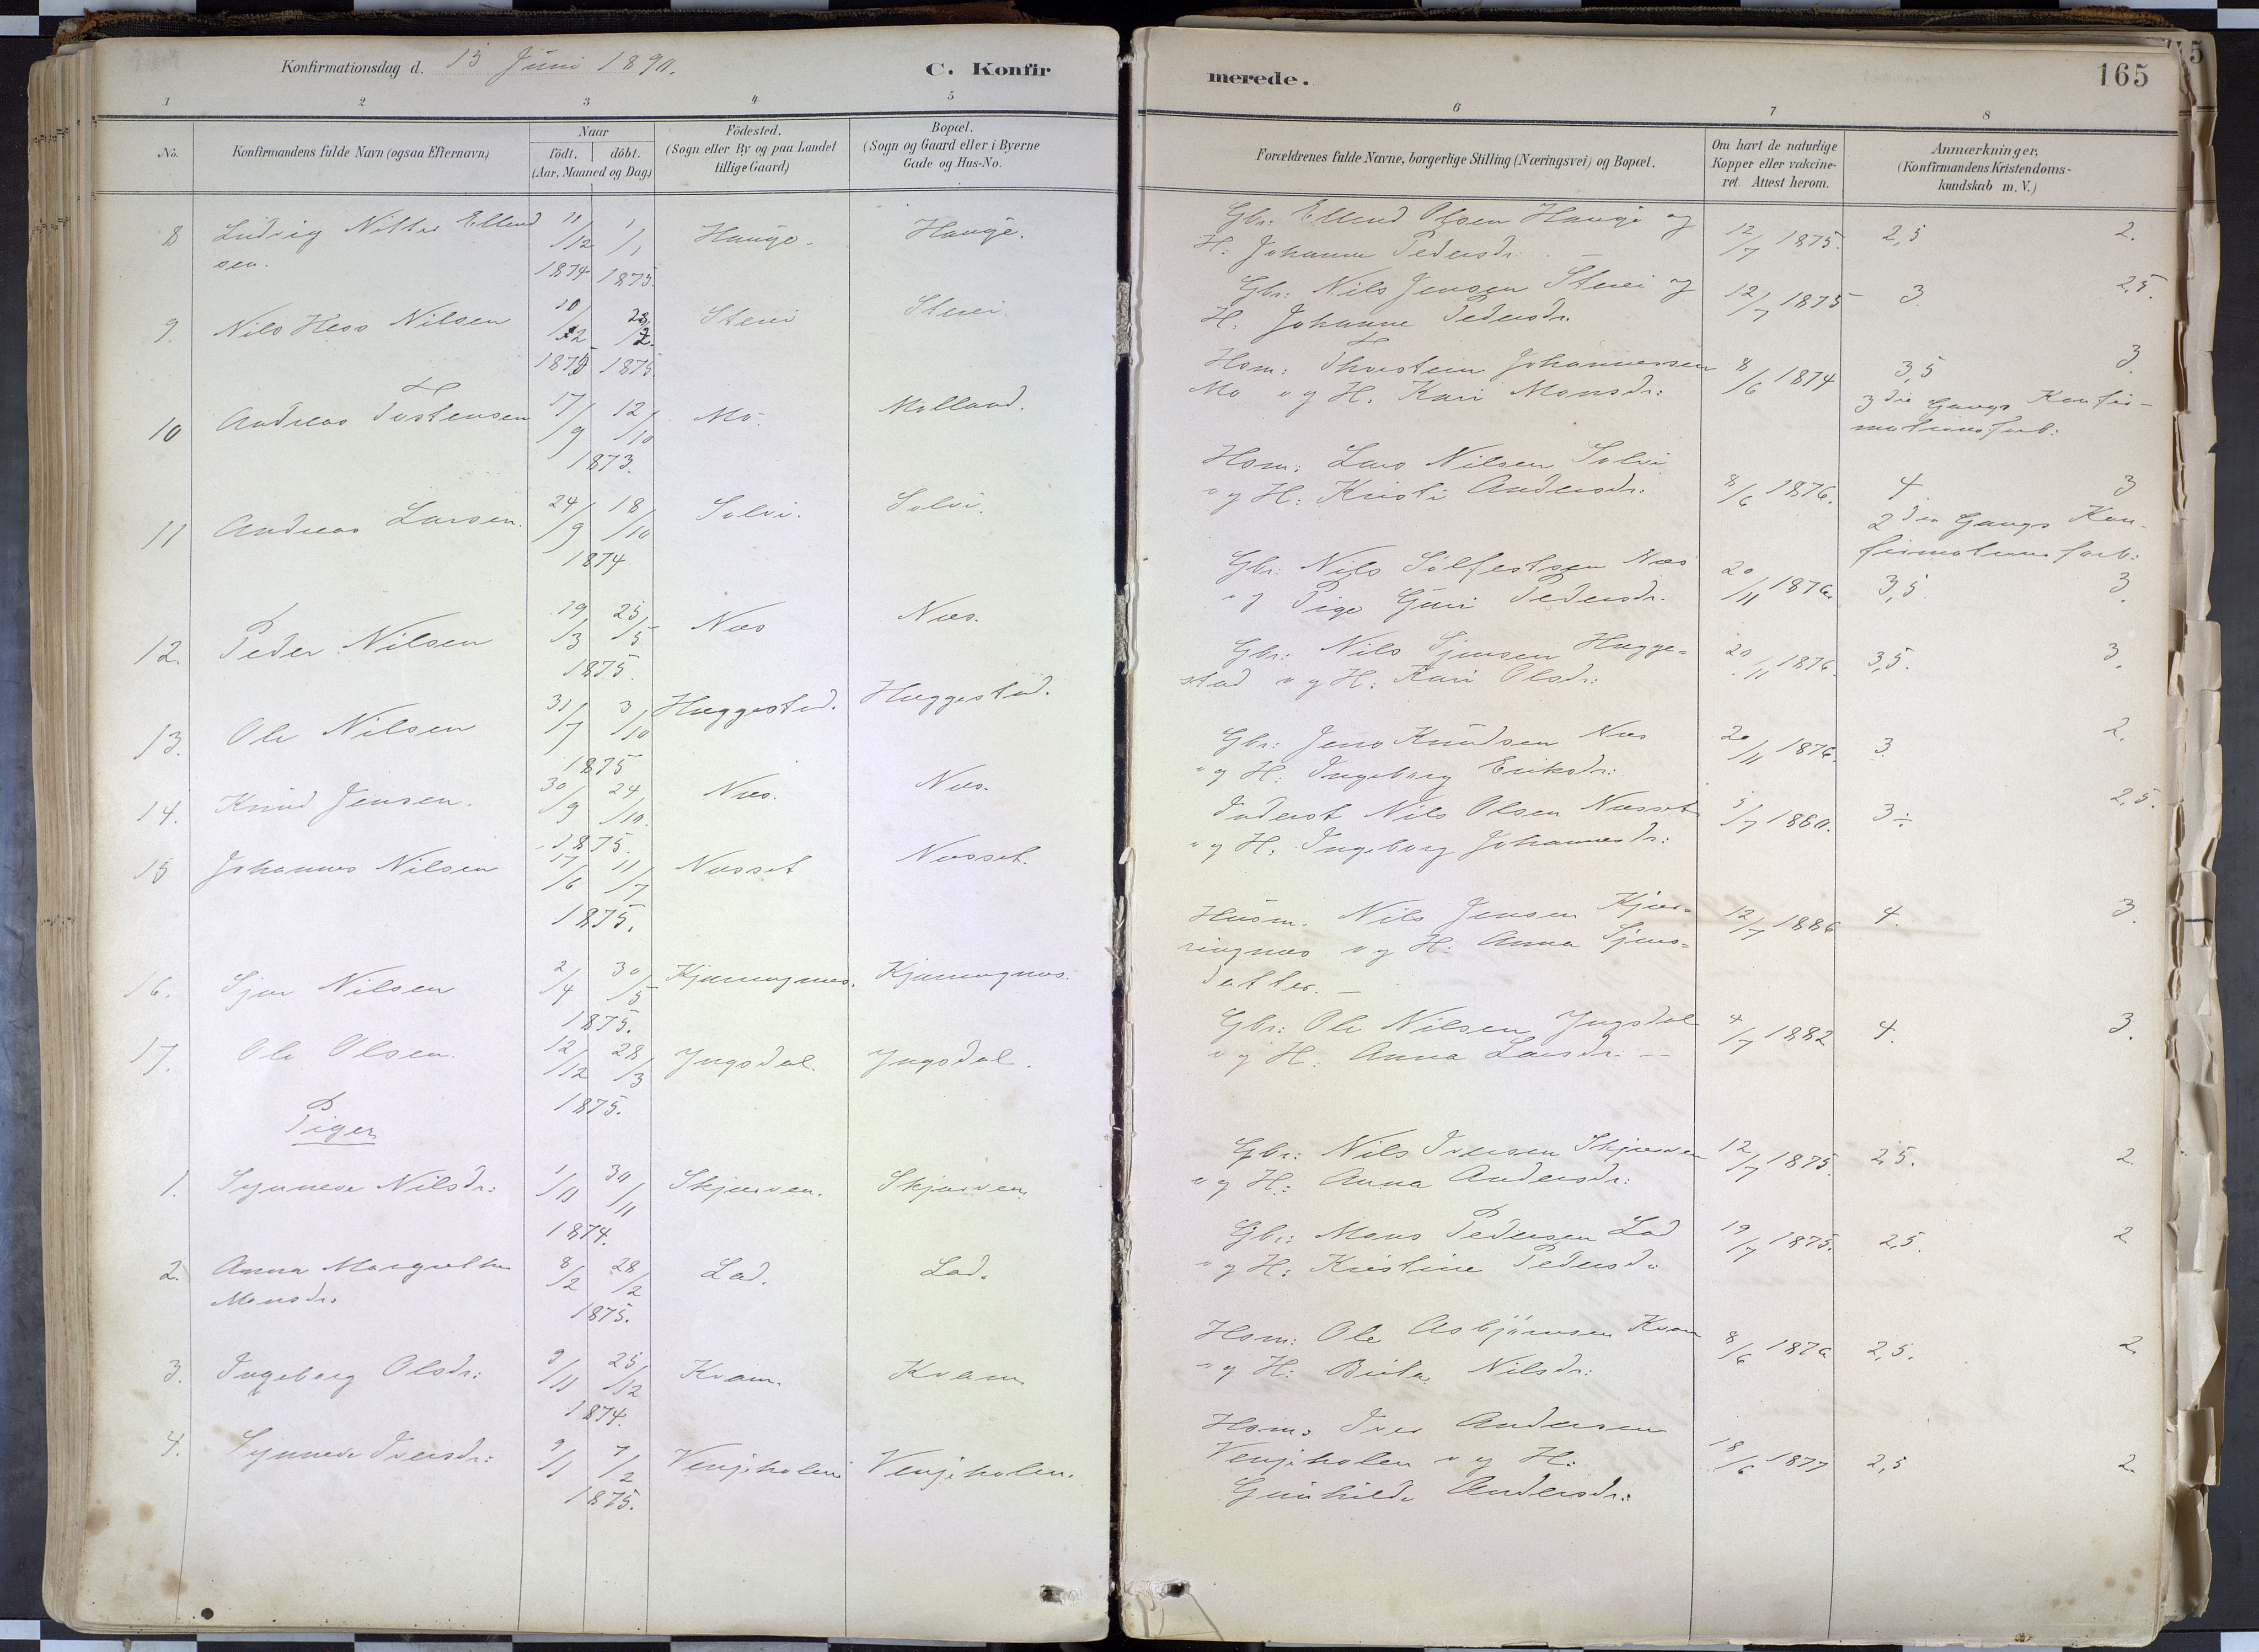 Konfirmationsdag d. 15 Juni 1890.
C. Konfir
1 2 3 4 5
No.
Konfirmandens fulde Navn (ogsaa Efternavn)
Naar
födt. döbt.
(Aar, Maaned og Dag)
Födested.
(Sogn eller By og paa Landet
tillige Gaard)
Bopæl.
(Sogn og Gaard eller i Byerne
Gade og Hus-No.
8 Ludvig Nitter Ellend 11/12 1/1 Hauge. Hauge.
sen. 1874 1875.
9. Nils Hess Nilsen 10/12 Sterei Sterei
1875.
10 Andreas Tostensen 17/9 12/10 Mo. Molland.
1873.
11 Andreas Larsen. 24/9 18/10 Solvi. Solvi.
1874
12. Peder Nilsen 19/3 25/5 Næs Næs.
1875.
13. Ole Nilsen 31/7 3/10 Huggestad. Huggestad.
1875
14. Knud Jensen. 30/9 24/10. Næs. Næs.
1875.
15 Johannes Nilsen 17/6 11/7 Næsset Næsset.
1875.
16. Sjur Nilsen 2/4 30/5 Kjæringnes. Kjæringnæs.
1875.
17. Ole Olsen. 12/12 28/3 Yngsdal. Yngsdal.
1875.
Piger
1. Synneve Nilsdr: 1/11 30/11 Skjerven. Skjerven.
1874.
2. Anna Margrethe 8/2 28/2 Lad. Lad.
Monsdr. 1875.
3. Ingeborg Olsdr: 9/11 25/12 Kvam. Kvam.
1874.
4. Synneve Iversdr: 9/1 7/2 Vengeholen Vengeholen.
1875.
merede.
165
6 7 8
Forældrenes fulde Navne, borgerlige Stilling (Næringsvei) og Bopæl.
Om havt de naturlige
Kopper eller vakcine-
ret. Attest herom.
Anmærkninger.
(Konfirmandens Kristendoms-
kundskab m. V.)
Gbr. Ellend Olsen Hauge og 12/7 1875. 2,5 2.
H: Johanne Pedersdr.
Gbr: Nils Jensen Sterei og 12/7 1875 3. 2.5.
H. Johanne Pedersdr.
Hsm: Thorstein Johannessen 8/6 1874 3,5 3.
Mo og H. Kari Monsdr: 3die Gangs Konfir-
mationsforb:
Hsm: Lars Nilsen Solvi
og H: Kristi Andersdr. 8/6 1876. 4 3
2den Gangs Kon-
firmations forb:
Gbr: Nils Sölfestsen Næs 20/11 1876. 3,5. 3.
og Pige Guri Pedersdr.
Gbr: Nils Sjursen Hugge- 20/11 1876. 3,5. 3.
stad og H: Kari Olsdr:
Gbr: Jens Knudsen Næs 20/11 1876. 3. 2.
og H: Ingeborg Eriksdr:
Inderst Nils Olsen Næsset 5/7 1860. 3÷ 2,5.
og H. Ingeborg Johannesdr:
Husm. Nils Jensen Kjær- 12/7 1886 4. 3.
ringnæs og H: Anna Sjurs-
datter. —
Gbr: Ole Nilsen Yngsdal 4/7 1882 4. 3.
og H. Anna Larsdr. —
Gbr: Nils Iversen Skjerven 12/7 1875. 2,5. 2
og H: Anna Andersdr:
Gbr: Mons Pedersen Lad 19/7 1875. 2,5. 2
og H: Kristine Pedersdr
Hsm: Ole Asbjörnsen Kvam 8/6 1876 2,5. 2.
og H: Brita Nilsdr:
Hsm. Iver Andersen
Vengeholen og H: 18/6 1877 2,5 2.
Gunhilde Andersdr: